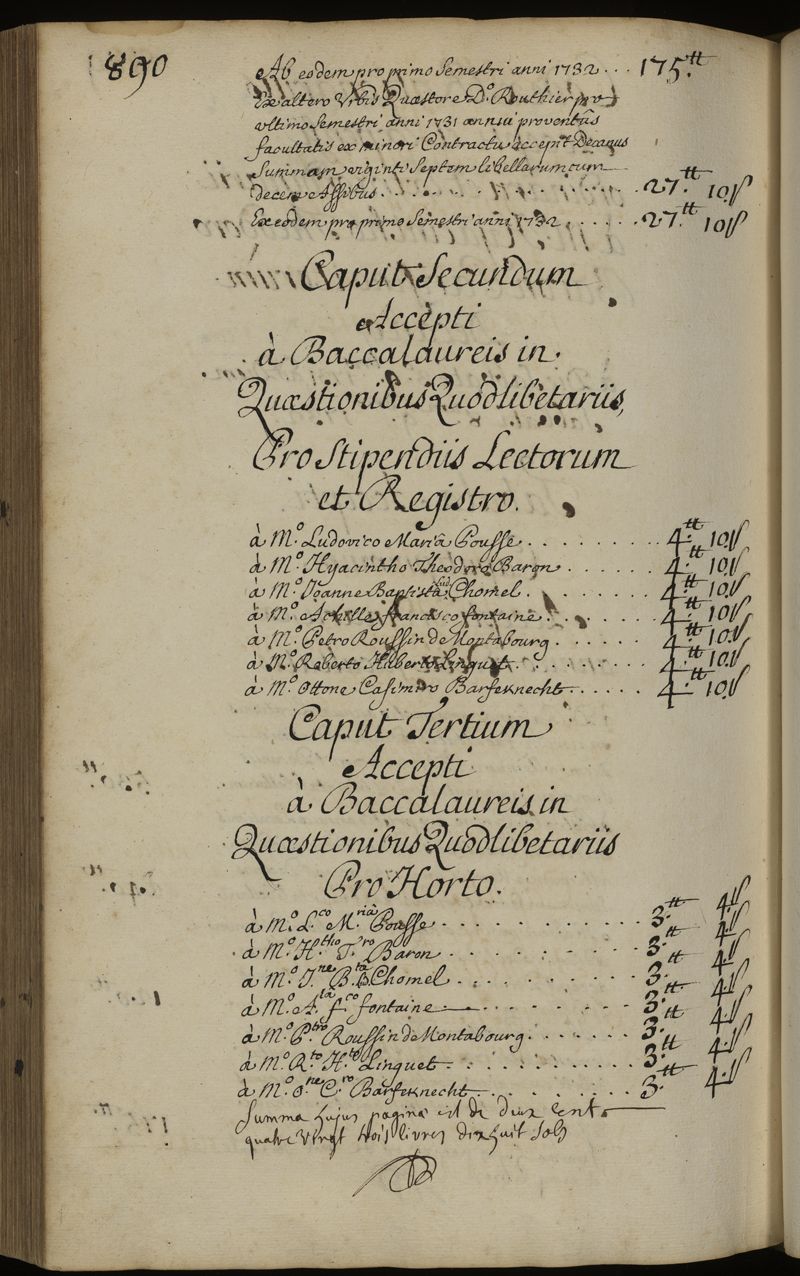 890
Ab eodem pro primo Semestri anni 1732 . . . 175.tt
Ex altero Urbis Quæstore D.º Routhier pro
ultimo Semestri anni 1731 annui proventûs
facultatis ex minori Contractu accepit Decanus
Summam viginti Septem libellarum cum
decem Assibus . . . . . . . . . . . . 27.tt 10ſ
Ex eodem pro primo Semestri anni 1732 . . . . . . 27.tt 10ſ
Caput Secundum
Accepti
à Baccalaureis in
Quæstionibus Quodlibetariis,
Pro Stipendiis Lectorum
et Registro.
à M.º Ludovico Mariâ Pousse . . . . . . . . 4.tt 10ſ
à M.º Hyacintho Theodoro Baron . . . . . . 4.tt 10ſ
à M.º Joanne Baptista Lud. Chomel . . . . . . . . 4.tt 10ſ
à M.º Achille francisco fontaine . . . . . . . 4.tt 10ſ
à M.º Petro Roussin de Montabourg . . . . . . 4.tt 10ſ
à M.º Roberto Huberto Linguet . . . . . . . . 4.tt 10ſ
à M.º Ottone Casimiro Barfeknecht . . . . . 4.tt 10ſ
Caput Tertium
Accepti
à Baccalaureis in
Quæstionibus Quodlibetariis
Pro Horto.
à M.º L.co M.riâ Pousse . . . . . . . . . . 3.tt 4ſ
à M.º H.tho T.ro Baron . . . . . . . . . . 3.tt 4ſ
à M.º J.ne B.ta L. Chomel . . . . . . . . . 3.tt 4ſ
à M.º A. f.co fontaine . . . . . . . . . 3.tt 4ſ
à M.º P.tro Roussin de Montabourg . . . . . . . 3.tt 4ſ
à M.º R.to H.to Linguet . . . . . . . . . . 3.tt 4ſ
à M.º O.ne C.ro Barfeknecht . . . . . . . . . 3.tt 4ſ
Summa hujus paginæ est de deux cents
quatre vingt trois livres dix huit sols